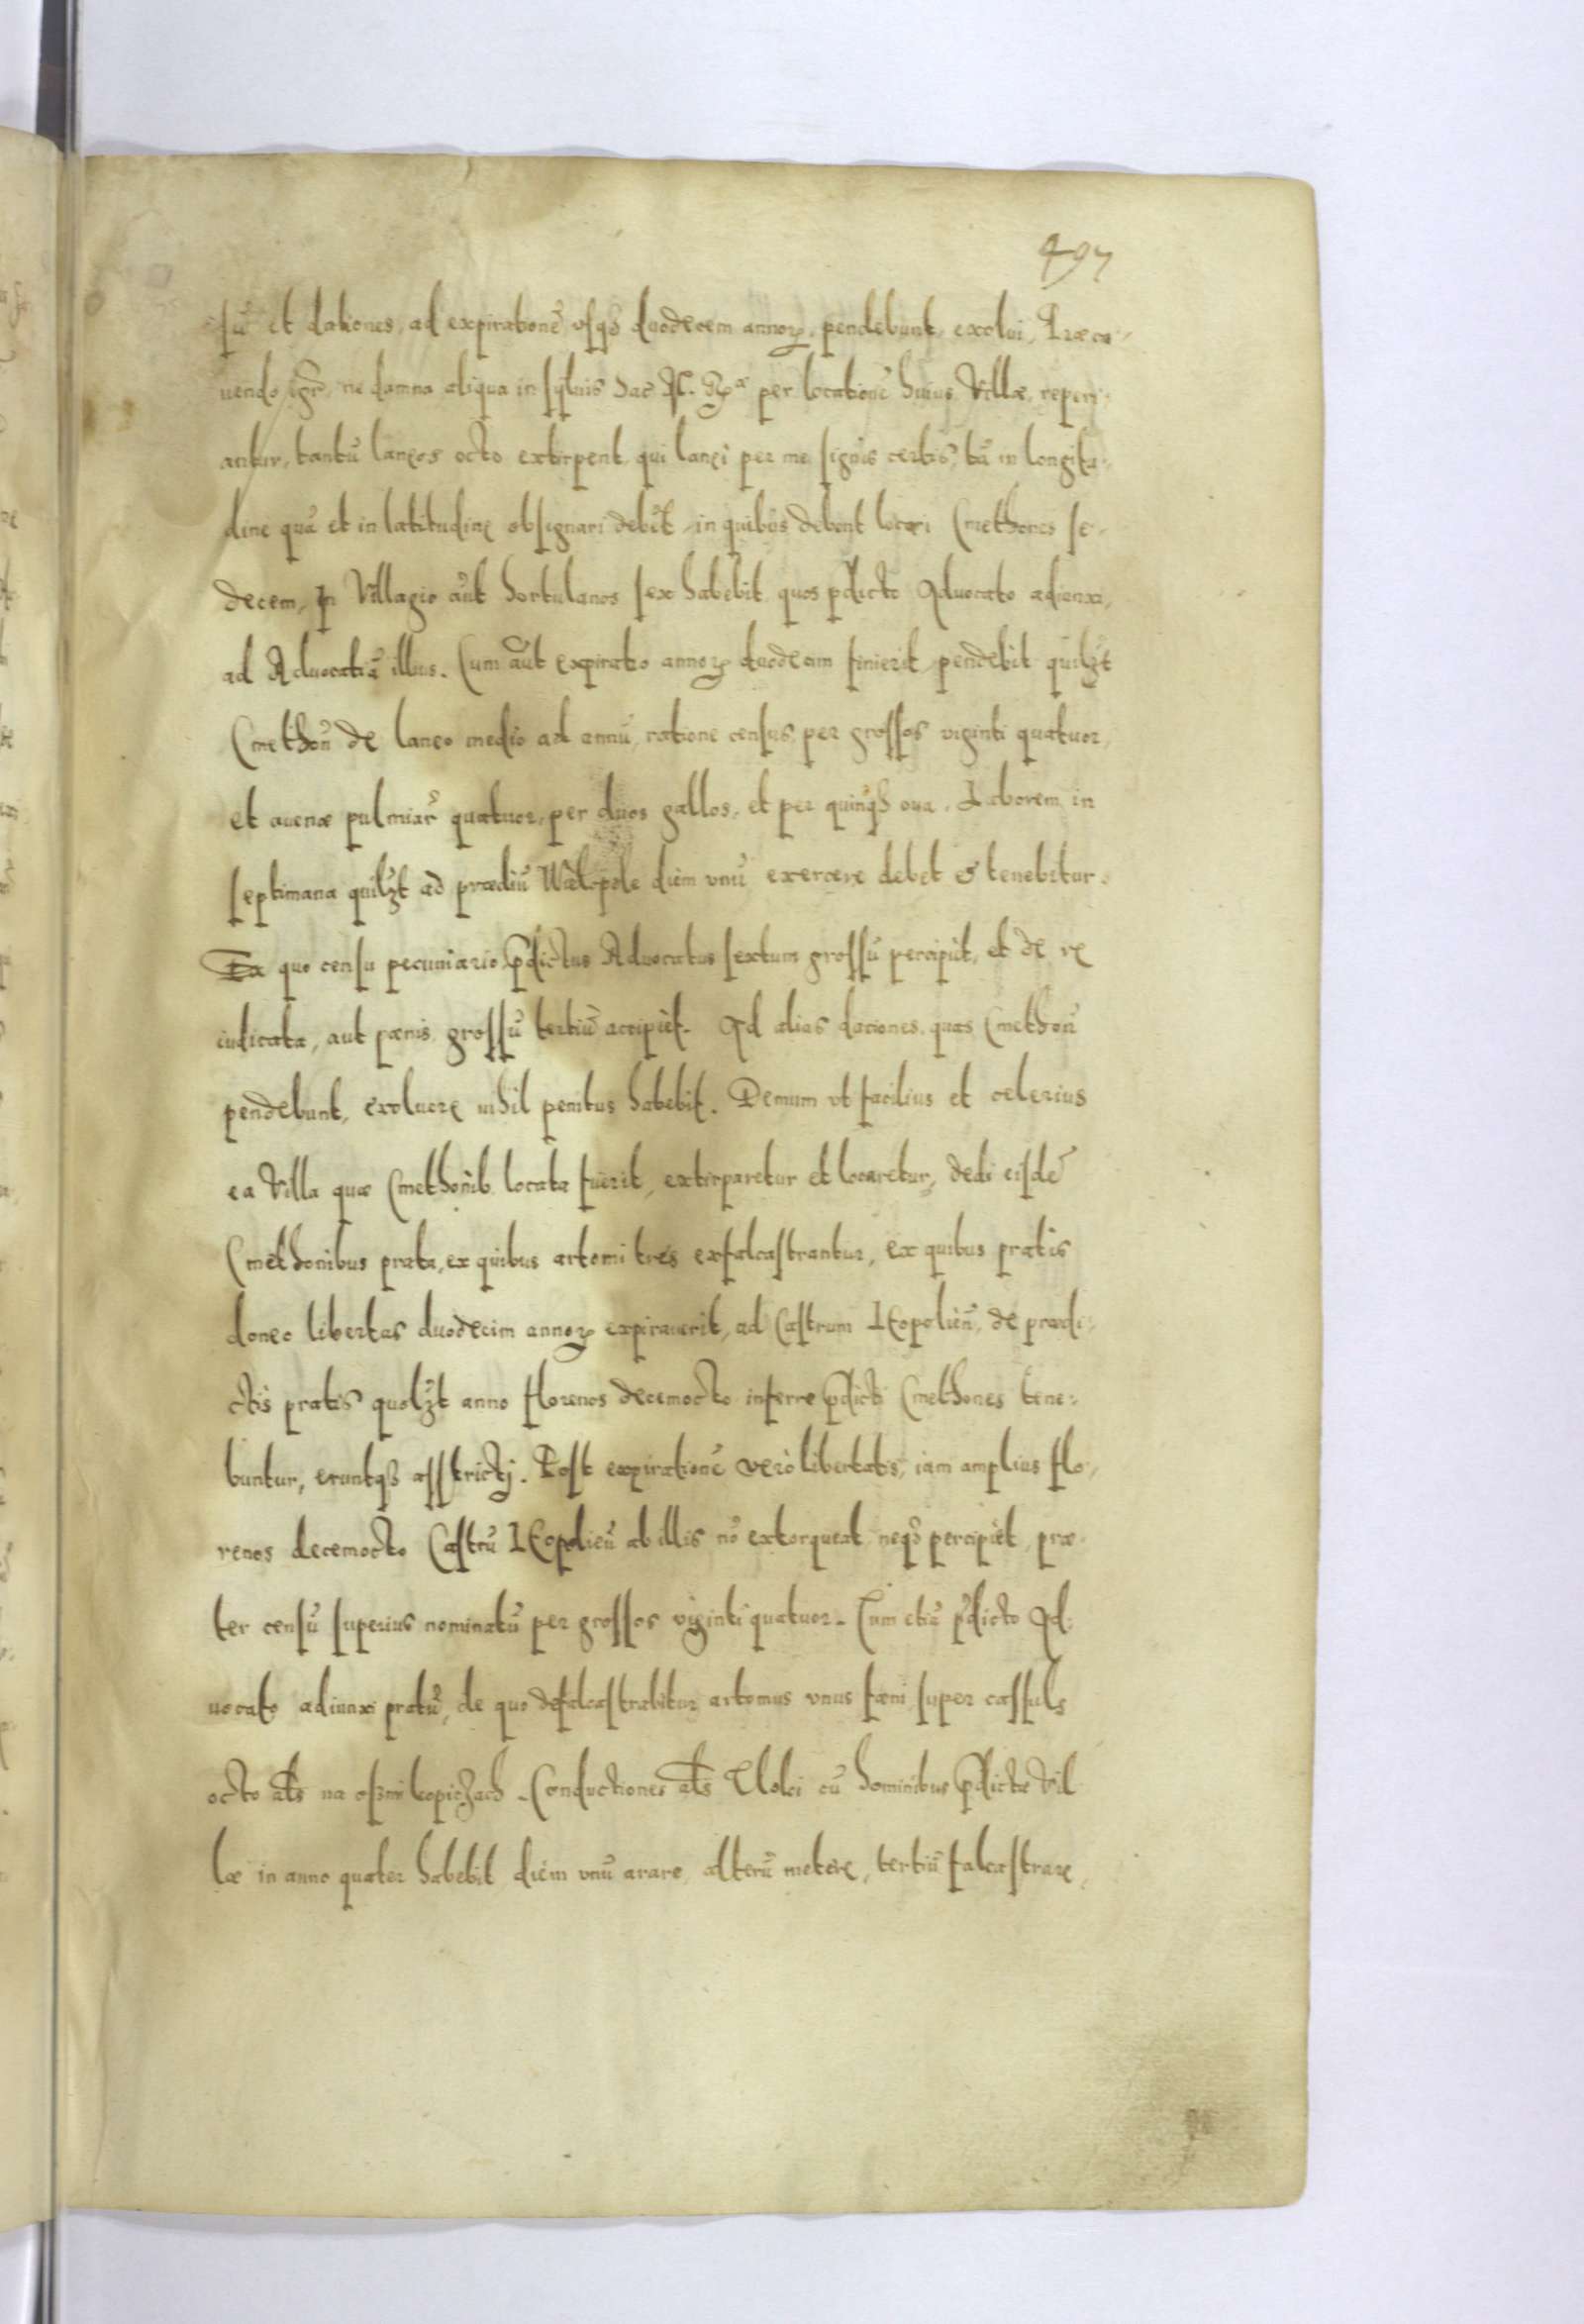 497
sũ et dationes, ad expirationẽ usq₃ duodecem annoꝝ pendebunt, exolui, Præca-
uendo igr̃, ne damna aliqua in syluis Sac. R. per locationẽ huius Villæ, reperi-
antur, tantũ laneos octo extirpent, qui lanei per me signis certis, tã in longitu-
dine quã et in latitudine obsignari debẽt, in quibus debent locari Cmethones se-
decem, In Villagio aũt hortulanos sex habebit, quos p̃dicto Aduocato adiunxi,
ad Aduocatiã illius. Cum aũt expiratio annoꝝ duodecim finierit, pendebit quilꝫt
Cmethoñ de laneo medio ad annũ, ratione census, per grossos viginti quatuor,
et auenæ pulmiar̃ quatuor, per duos gallos, et per quinq₃ oua. Laborem in
septimana quilꝫt ad prædiũ Wielopole diem vnũ exercere debet & tenebitur.
Ex quo censu pecuniario p̃dictus Aduocatus sextum grossũ percipiet, et de re
iudicata, aut pœnis, grossũ tertiũ accipiet. Ad alias daciones, quas Cmethoñ
pendebunt, exoluere nihil penitus habebit. Demum vt facilius et celerius
ea Villa quæ Cmethonib. locata fuerit, extirparetur et locaretur, dedi eisdẽ
Cmethonibus prata, ex quibus artomi tres exfalcastrantur, ex quibus pratis
donec libertas duodecim annoꝝ expirauerit, ad Castrum Leopolieñ, de prædi-
ctis pratis quolꝫt anno florenos decemocto inferre p̃dicti Cmethones tene-
buntur, eruntq₃ asstricti. Post expirationẽ verò libertatis, iam amplius flo-
renos decemocto Castrũ Leopolieñ ab illis nõ extorqueat, neq₃ percipiet, præ-
ter censũ superius nominatũ per grossos viginti quatuor. Cum etiã p̃dicto Ad-
uocato adiunxi pratũ, de quo defalcastrabitur artomus vnus fœni super cassuls
octo als na oszmi kopiczach. Conductiones als Tloki cũ hominibus p̃dictæ Vil
læ in anno quater habebit diem vnũ arare, alterũ metere, tertiũ falcastrare,